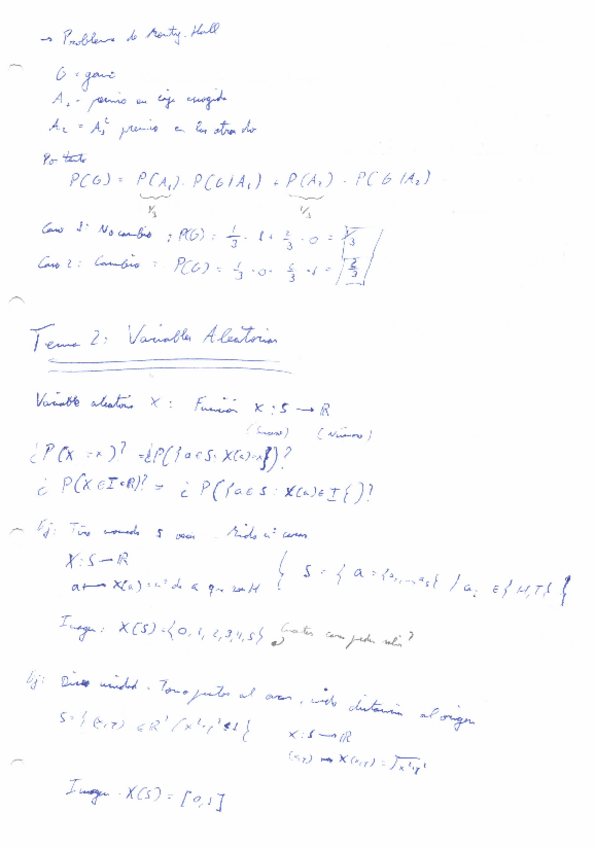 → Problema de Monty-Hall
G = gano
A₁ = premio en caja escogida
A₂ = A₁ᶜ premio en las otras dos
Por tanto
P(G) = P(A₁) · P(G|A₁) + P(A₂) · P(G|A₂)
1/3 2/3
Caso 1: No cambio : P(G) = 1/3 · 1 + 2/3 · 0 = 1/3
Caso 2: Cambio : P(G) = 1/3 · 0 + 2/3 · 1 = 2/3
Tema 2: Variables Aleatorias
Variable aleatoria X : Función X : S → ℝ
(Números)
¿P(X = x)? = ¿P({a ∈ S : X(a) = x})?
¿P(X ∈ I ⊂ ℝ)? = ¿P({a ∈ S : X(a) ∈ I})?
Ej: Tiro moneda 5 veces. Mido nº caras
X : S → ℝ
a ↦ X(a) = nº de a que son H
{ S = { a = {a₁, ... a₅} / aᵢ ∈ {H,T} }
Imagen: X(S) = {0, 1, 2, 3, 4, 5} ¿Cuántas caras pueden salir?
Ej: unidad. Tomo puntos al azar, mido distancia al origen
S = { (x,y) ∈ ℝ² / x²+y² ≤ 1 }
X : S → ℝ
(x,y) → X(x,y) = √x²+y²
Imagen X(S) = [0,1]